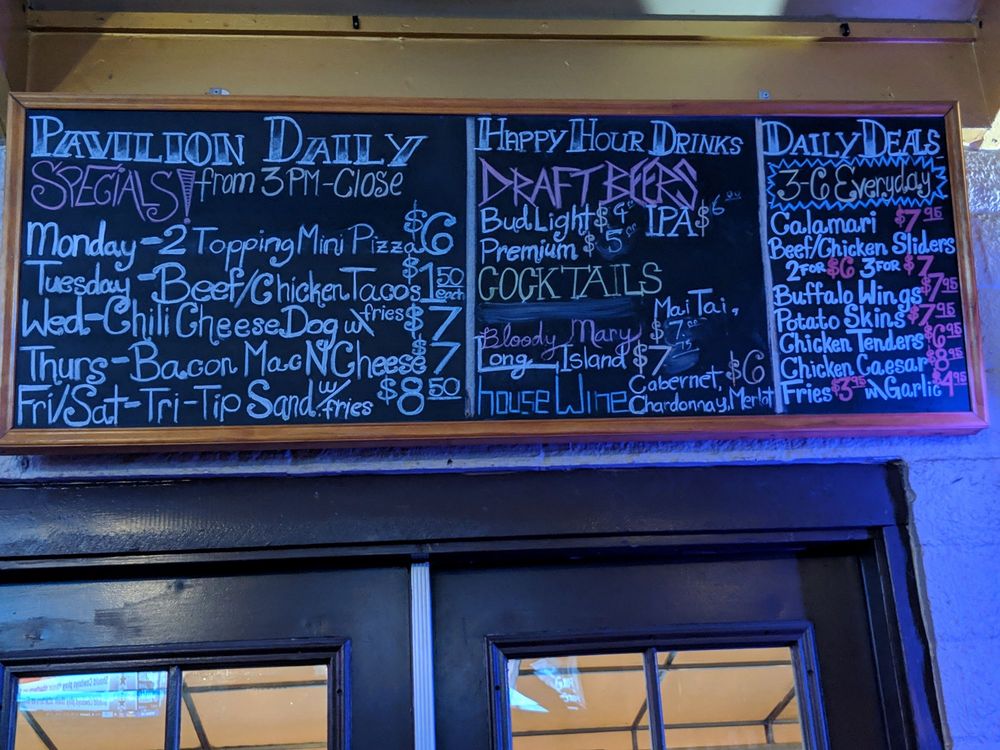 PAVILION DAILY
SPECIALS! from 3PM-Close
Monday - 2 Topping Mini Pizza $6
Tuesday - Beef/Chicken Tacos $1.50 each
Wed - Chili Cheese Dog w/ fries $7
Thurs - Bacon Mac N Cheese $7
Fri/Sat - Tri-Tip Sand. w/ fries $8.50
HAPPY HOUR DRINKS
DRAFT BEERS
Bud Light $4 IPA $6
Premium $5
COCKTAILS
Mai Tai,
Bloody Mary
Long Island $7
House Wine Cabernet, $6
Chardonnay, Merlot
DAILY DEALS
3-6 Everyday
Calamari $7.95
Beef/Chicken Sliders
2 FOR $6 3 FOR $7
Buffalo Wings $7.95
Potato Skins $7.95
Chicken Tenders $6.95
Chicken Caesar $8.95
Fries $3.95 w/ Garlic $4.95